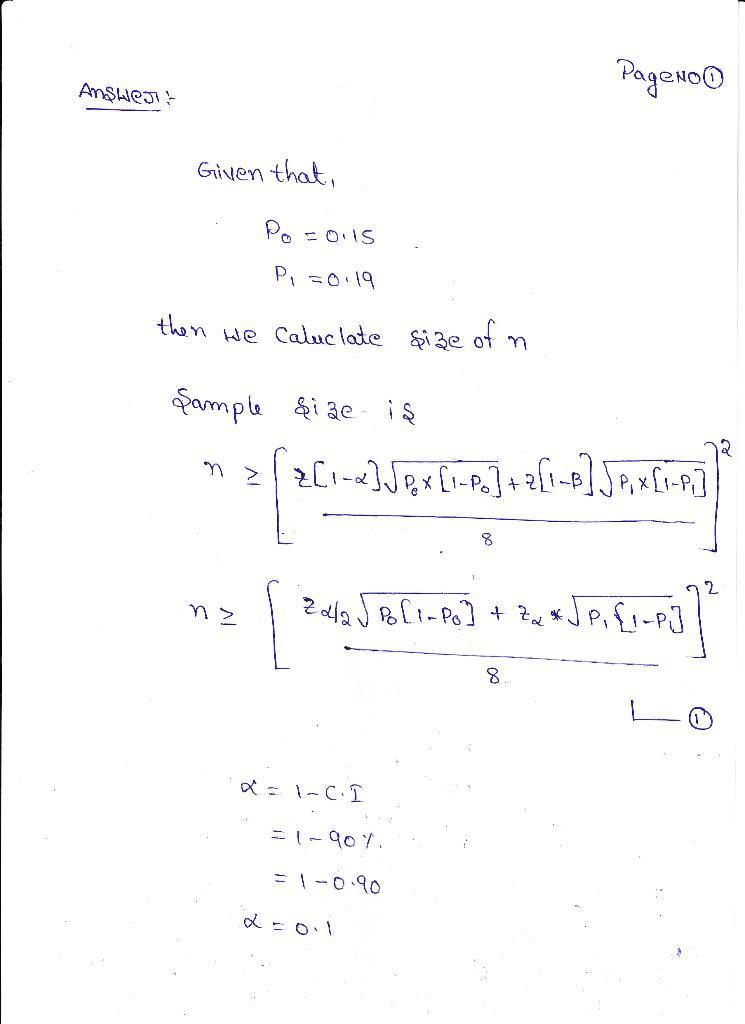 PageNO①
Answer :-
Given that,
P₀ = 0.15
P₁ = 0.19
then we Caluclate size of n
Sample size is
n ≥ [ z[1-α] √P₀ x [1-P₀] + z[1-B] √P₁ x [1-P₁] / 8 ]²
n ≥ [ Z α/2 √P₀ [1-P₀] + Z α * √P₁ {1-P₁] / 8. ]²
└─ ①
α = 1-C.I
= 1-90%.
= 1-0.90
α = 0.1